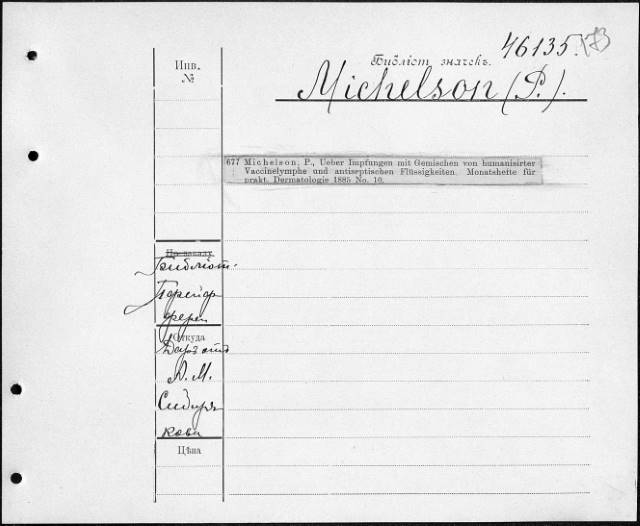 46135
Инв.
№
Библіот значекъ.
Michelson (P.).
677 Michelson, P., Ueber Impfungen mit Gemischen von humanisirter
Vaccinelymphe und antiseptischen Flüssigkeiten. Monatshefte für
prakt. Dermatologie 1885 No. 10.
Библіот.
Откуда
Даръ отъ
А. М.
Сибиря
кова
Цѣна